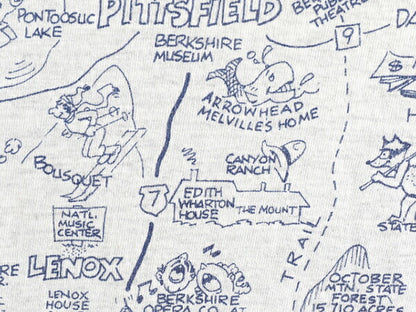 PONTOOSUC
LAKE
PITTSFIELD
BERKSHIRE
MUSEUM
THEATRE
9
DA
ARROWHEAD
MELVILLE'S HOME
$
H
BOUSQUET
CANYON
RANCH
7
EDITH
WHARTON
HOUSE
THE MOUNT
STATE
NATL.
MUSIC
CENTER
LENOX
LENOX
HOUSE
RE
TRAIL
BERKSHIRE
OPERA CO. AT
OCTOBER
MTN. STATE
FOREST
15,710 ACRES